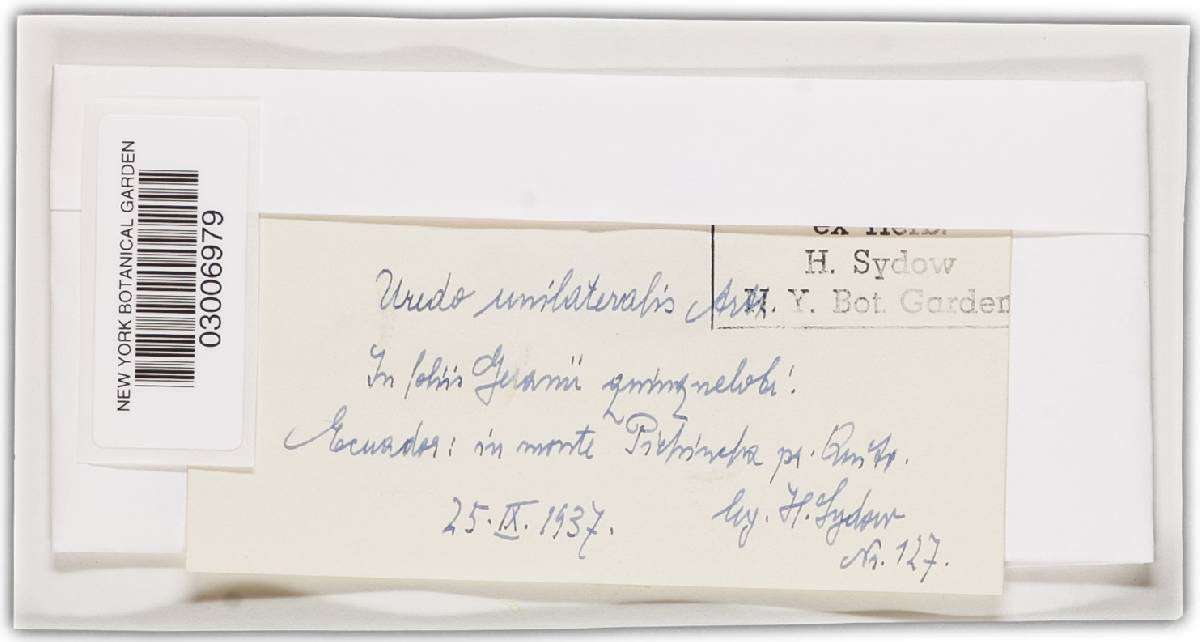 NEW YORK BOTANICAL GARDEN
03006979
ex Herb.
H. Sydow
N. Y. Bot. Garden
Uredo unilateralis Arth.
In foliis Geranii quinquelobi.
Ecuador: in monte Pichincha pr. Quito.
25. IX. 1937.
leg. H. Sydow
Nr. 127.